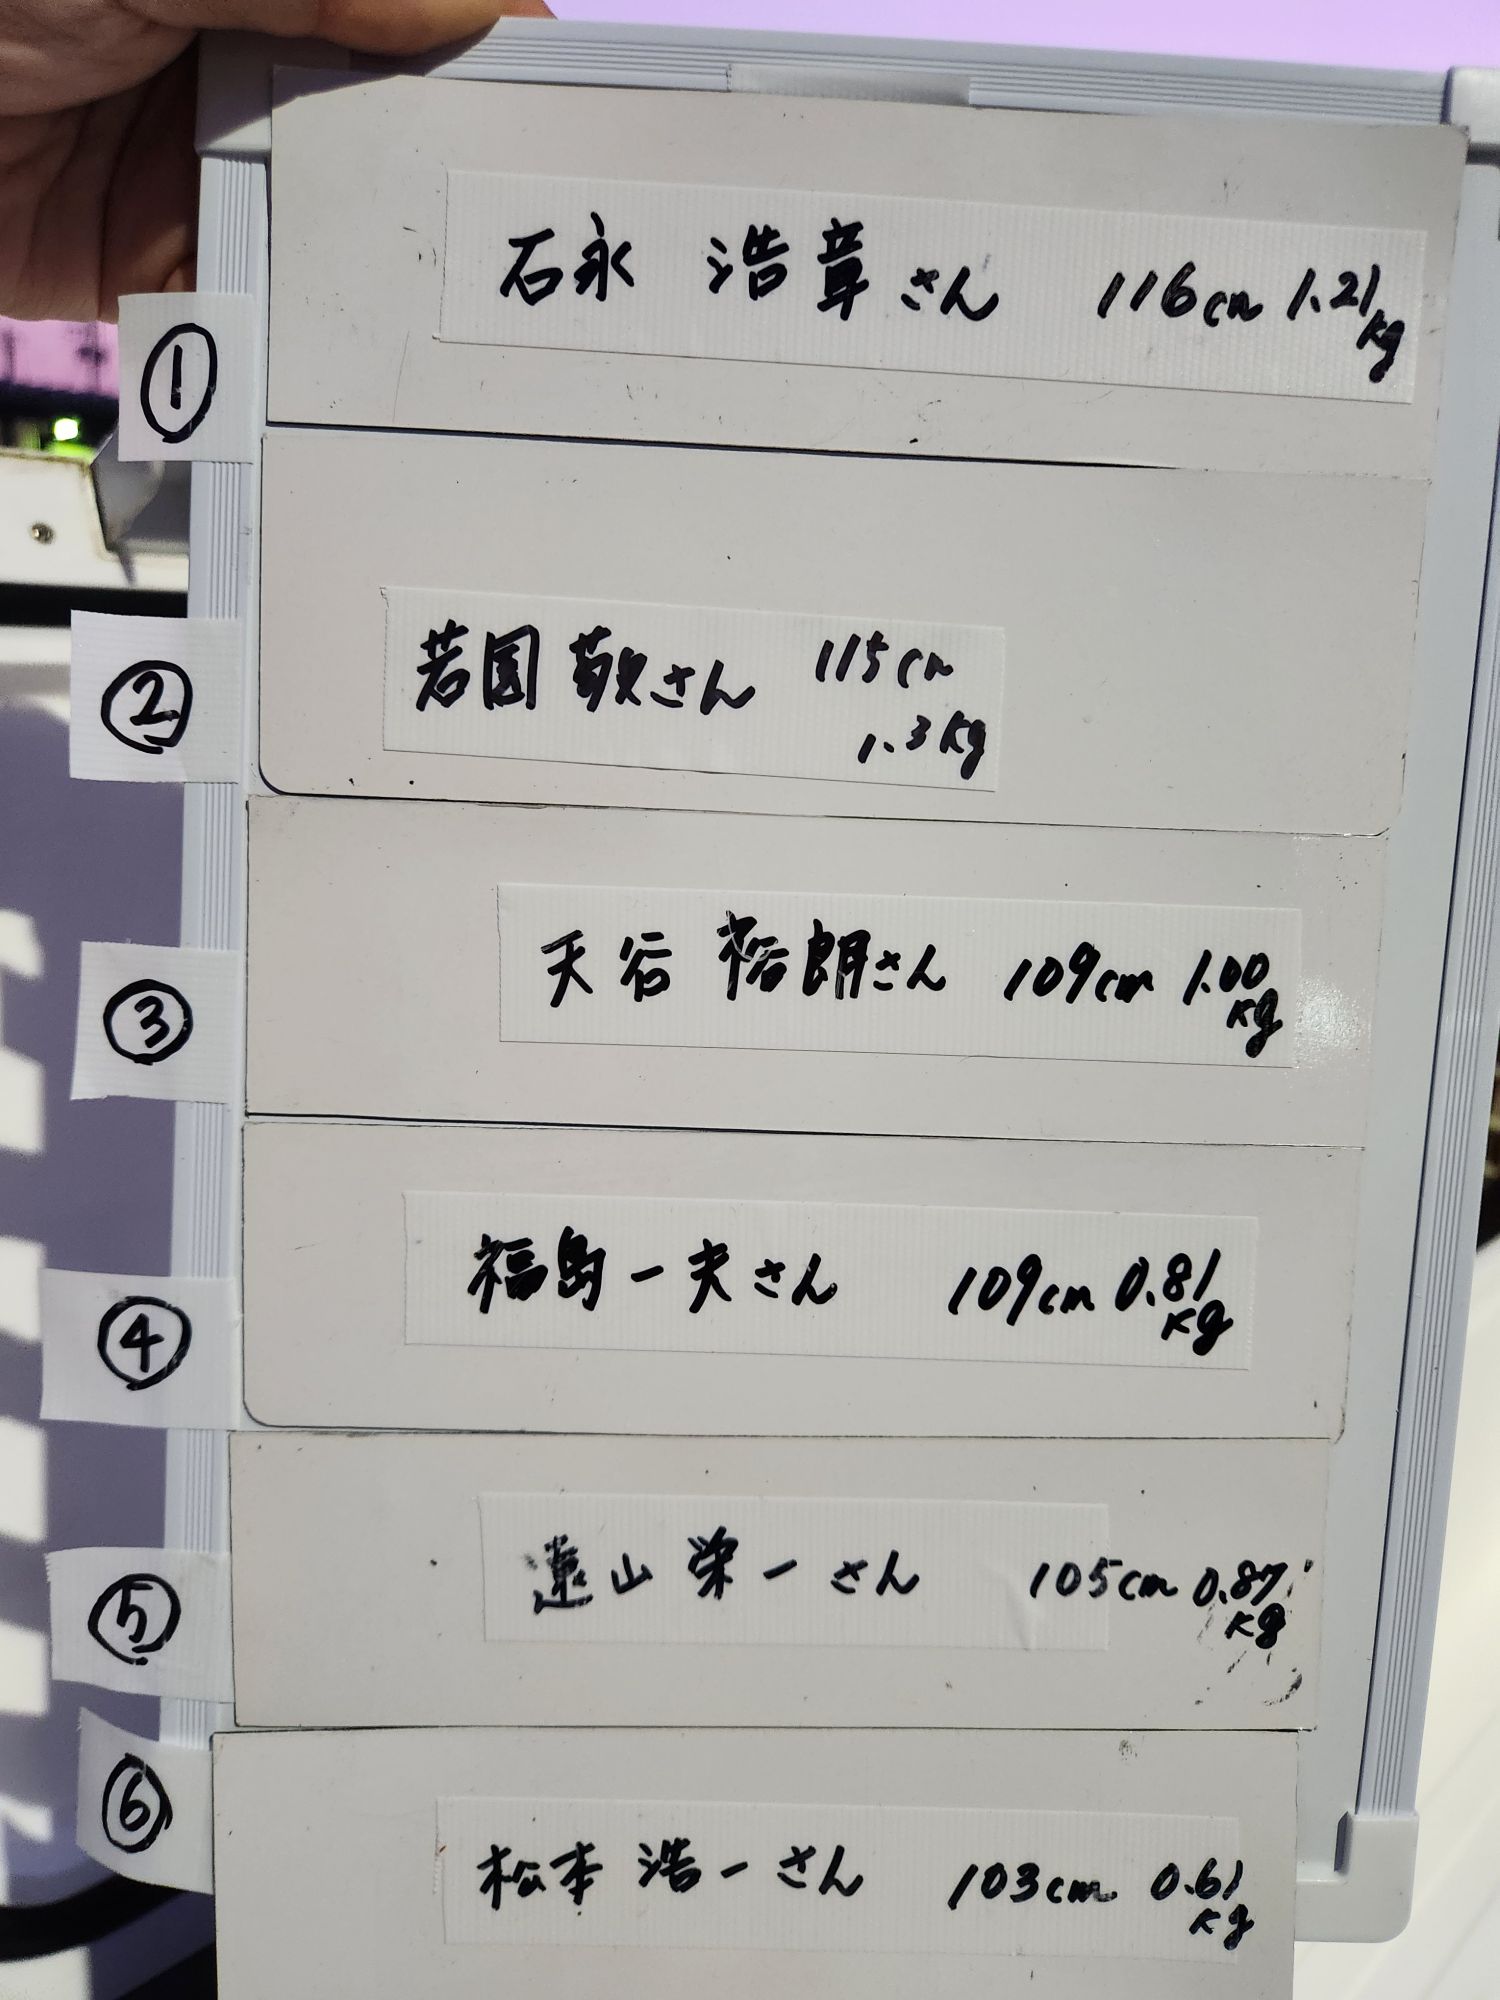 ① 石永 浩章さん 116cm 1.21kg
② 若園 敬さん 115cm
1.3kg
③ 天谷 裕朗さん 109cm 1.00
kg
④ 福島一夫さん 109cm 0.81
kg
⑤ 遠山 栄一さん 105cm 0.87
kg
⑥ 松本 浩一さん 103cm 0.61
kg